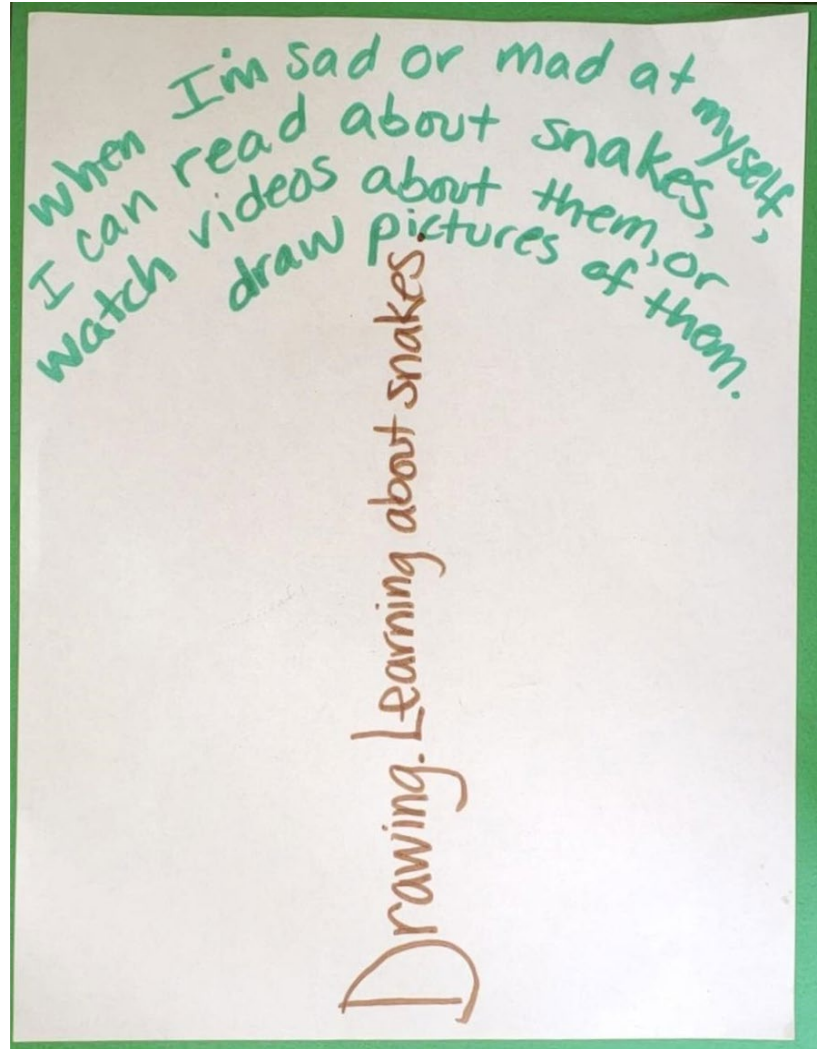 when I'm sad or mad at myself,
I can read about snakes,
watch videos about them, or
draw pictures of them.
Drawing. Learning about snakes.